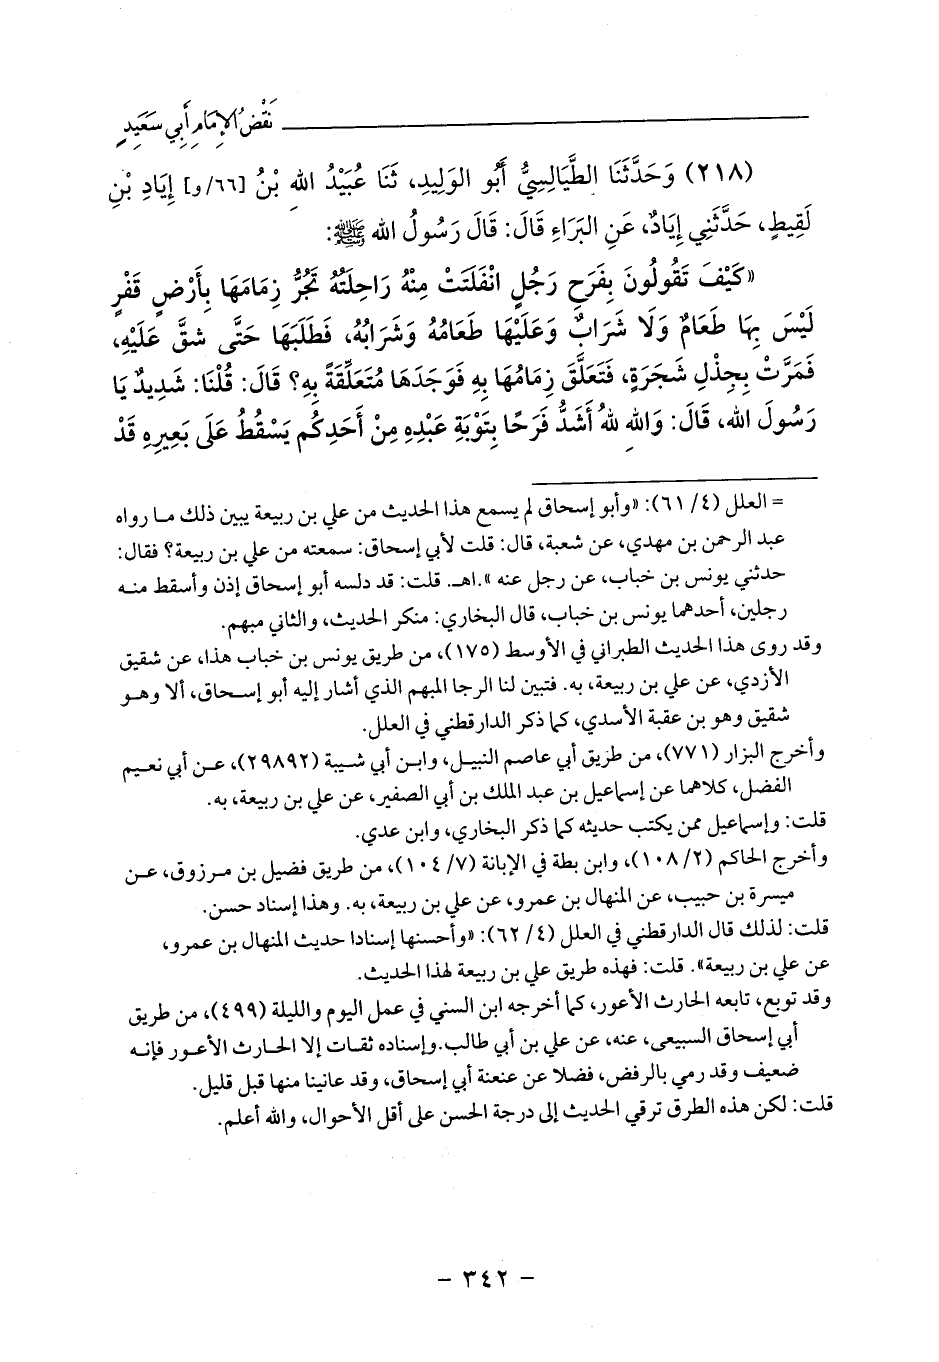 نَقْضُ الإِمَامِ أَبِي سَعَيدٍ
(٢١٨) وَحَدَّثَنَا الطَّيَالِسِيُّ أَبُو الوَلِيدِ، ثَنَا عُبَيْدُ اللهِ بْنُ [٦٦/و] إِيَادِ بْنِ
لَقِيطٍ، حَدَّثَنِي إِيَادٌ، عَنِ البَرَاءِ قَالَ: قَالَ رَسُولُ الله ﷺ:
«كَيْفَ تَقُولُونَ بِفَرَحِ رَجُلٍ انْفَلَتَتْ مِنْهُ رَاحِلَتُهُ تَجُرُّ زِمَامَهَا بِأَرْضٍ قَفْرٍ
لَيْسَ بِهَا طَعَامٌ وَلَا شَرَابٌ وَعَلَيْهَا طَعَامُهُ وَشَرَابُهُ، فَطَلَبَهَا حَتَّى شقَّ عَلَيْهِ،
فَمَرَّتْ بِجِذْلِ شَجَرَةٍ، فَتَعَلَّقَ زِمَامُهَا بِهِ فَوَجَدَهَا مُتَعَلِّقَةً بِهِ؟ قَالَ: قُلْنَا: شَدِيدٌ يَا
رَسُولَ الله، قَالَ: وَاللهِ للهُ أَشَدُّ فَرَحًا بِتَوْبَةِ عَبْدِهِ مِنْ أَحَدِكُم يَسْقُطُ عَلَى بَعِيرِهِ قَدْ
= العلل (٤/ ٦١): «وأبو إسحاق لم يسمع هذا الحديث من علي بن ربيعة يبين ذلك ما رواه
عبد الرحمن بن مهدي، عن شعبة، قال: قلت لأبي إسحاق: سمعته من علي بن ربيعة؟ فقال:
حدثني يونس بن خباب، عن رجل عنه».اهـ. قلت: قد دلسه أبو إسحاق إذن وأسقط منه
رجلين، أحدهما يونس بن خباب، قال البخاري: منكر الحديث، والثاني مبهم.
وقد روى هذا الحديث الطبراني في الأوسط (١٧٥)، من طريق يونس بن خباب هذا، عن شقيق
الأزدي، عن علي بن ربيعة، به. فتبين لنا الرجا المبهم الذي أشار إليه أبو إسحاق، ألا وهو
شقيق وهو بن عقبة الأسدي، كما ذكر الدارقطني في العلل.
وأخرج البزار (٧٧١)، من طريق أبي عاصم النبيل، وابن أبي شيبة (٢٩٨٩٢)، عن أبي نعيم
الفضل، كلاهما عن إسماعيل بن عبد الملك بن أبي الصفير، عن علي بن ربيعة، به.
قلت: وإسماعيل ممن يكتب حديثه كما ذكر البخاري، وابن عدي.
وأخرج الحاكم (٢/ ١٠٨)، وابن بطة في الإبانة (٧/ ١٠٤)، من طريق فضيل بن مرزوق، عن
ميسرة بن حبيب، عن المنهال بن عمرو، عن علي بن ربيعة، به. وهذا إسناد حسن.
قلت: لذلك قال الدارقطني في العلل (٤/ ٦٢): «وأحسنها إسنادا حديث المنهال بن عمرو،
عن علي بن ربيعة». قلت: فهذه طريق علي بن ربيعة لهذا الحديث.
وقد توبع، تابعه الحارث الأعور، كما أخرجه ابن السني في عمل اليوم والليلة (٤٩٩)، من طريق
أبي إسحاق السبيعي، عنه، عن علي بن أبي طالب.وإسناده ثقات إلا الحارث الأعور فإنه
ضعيف وقد رمي بالرفض، فضلا عن عنعنة أبي إسحاق، وقد عانينا منها قبل قليل.
قلت: لكن هذه الطرق ترقي الحديث إلى درجة الحسن على أقل الأحوال، والله أعلم.
- ٣٤٢ -